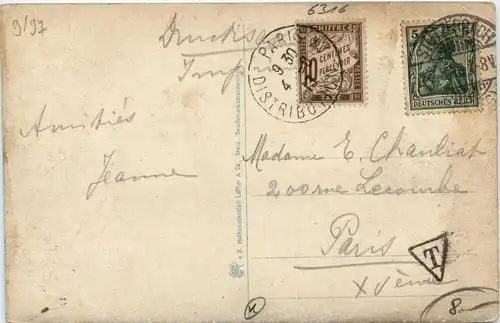 9/97
6316
Drucksache
PARIS
9 30
4
DISTRIBUTION
CHIFFRE
10
CENTIMES
À PERCEVOIR
TAXE
5 5
DEUTSCHES REICH
Amitiés
Jeanne
Madame E. Chauliat
200 rue Lecombe
Paris
XVème
T
8-